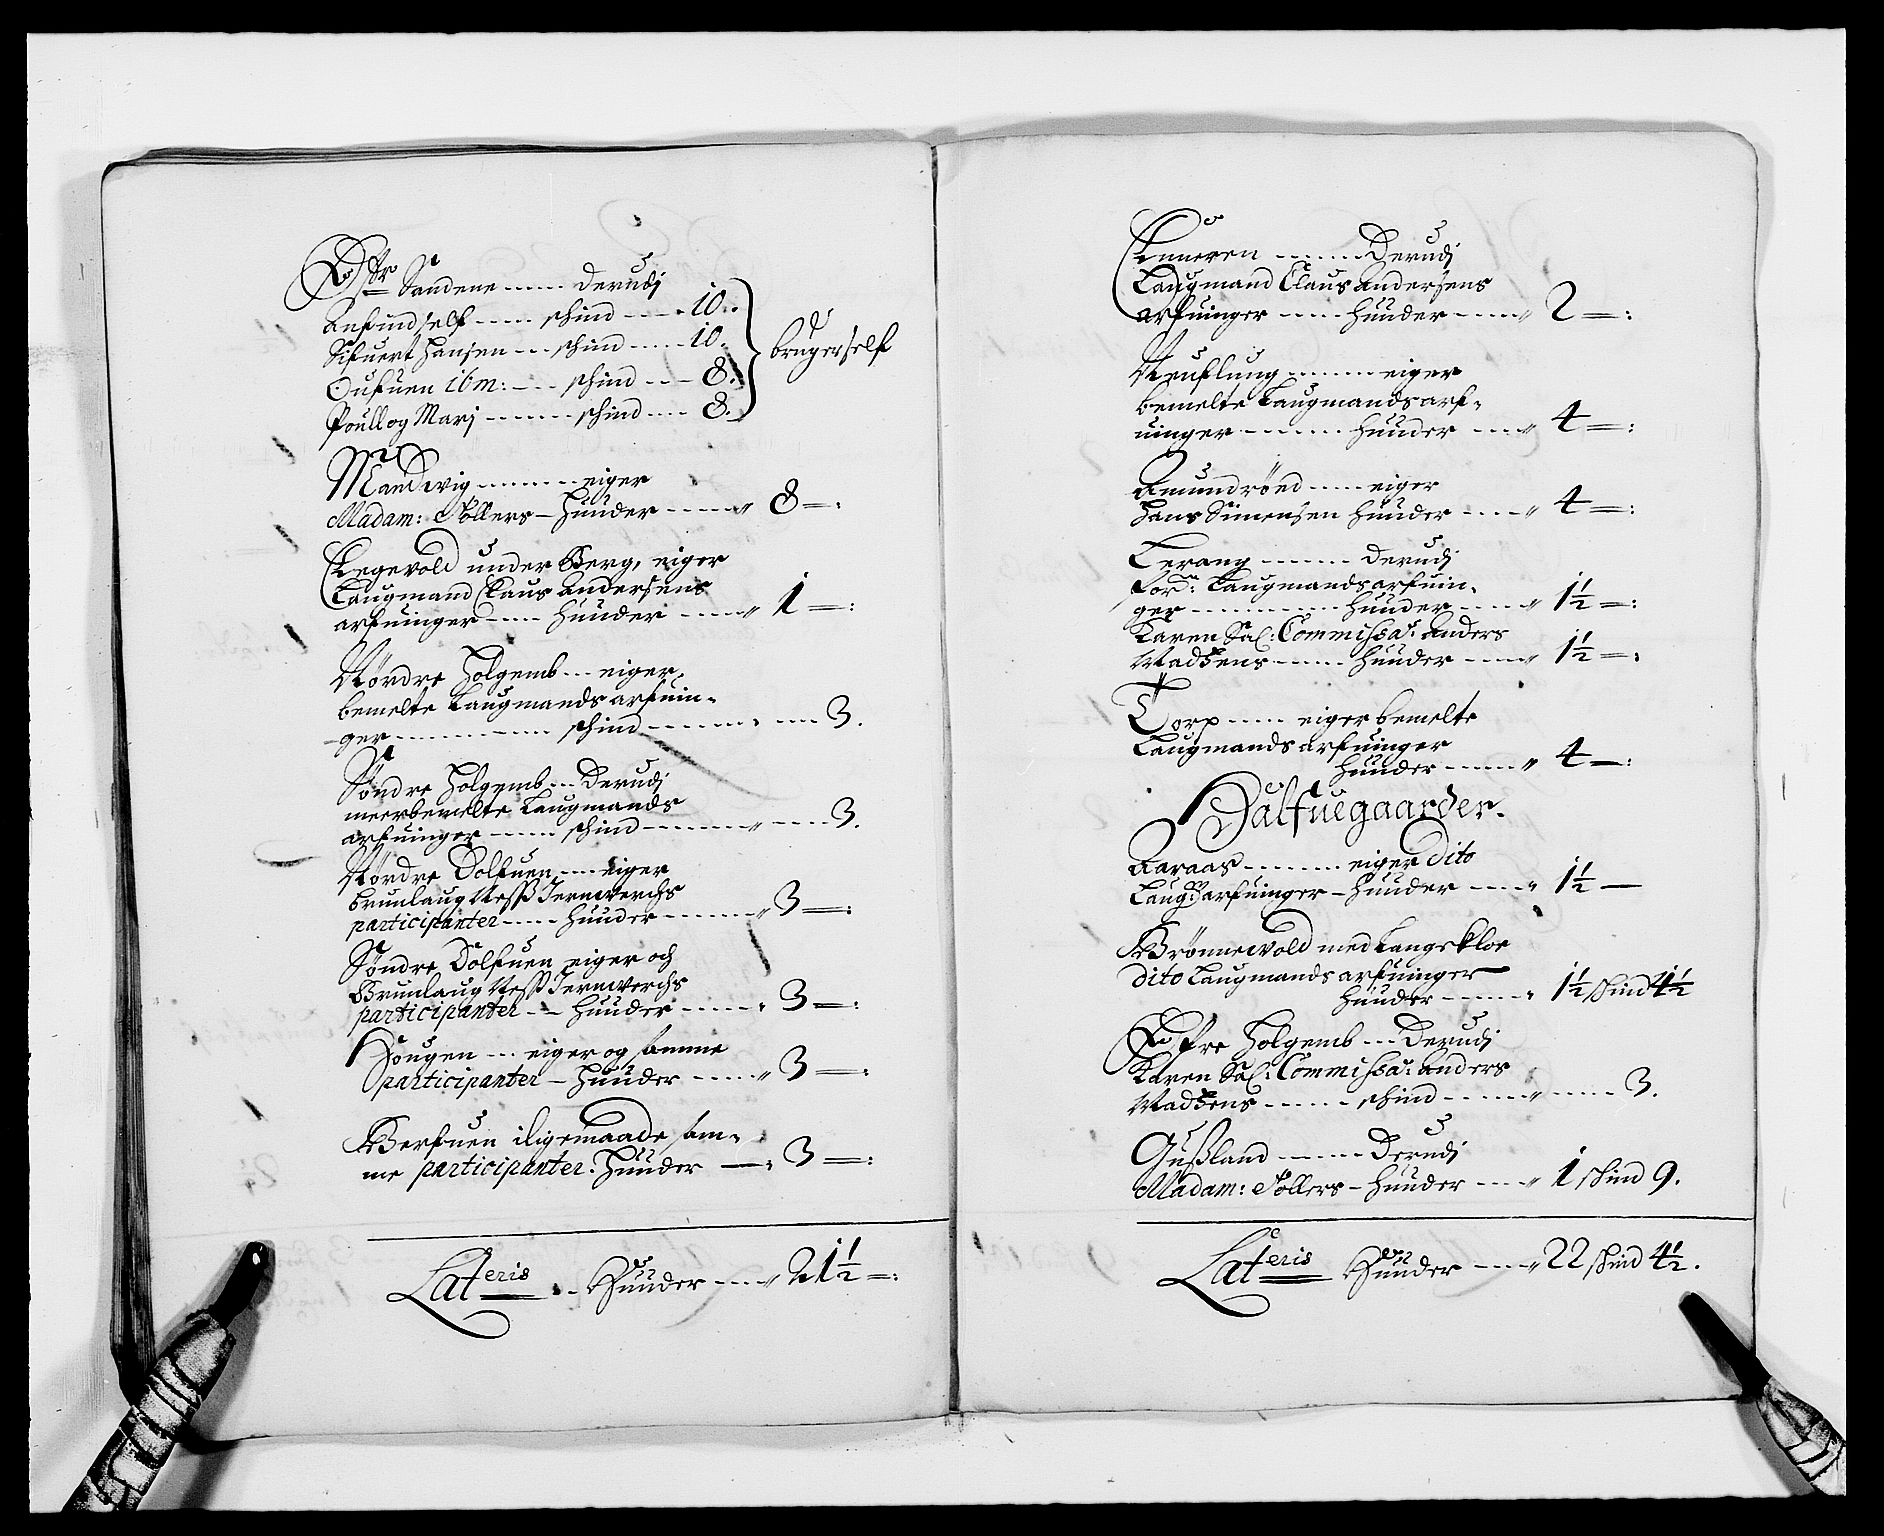 Østr Sandene ------ Derudj
Anfind self ----- schind ---- 10.
Sifuert Hansen --- schind ----- 10.
brugerself
Oufuen ibm: ---- schind ---- 8.
Poull og Marj ------- schind ---- 8.
Mandwig --------- eiger
Madam: Tøllers - Huuder ------ " 8 =:
Legevold under Berg, eiger
Laugmand Claus Andersens
arfuinger ----- Huuder ----- " 1 =:
Nørdre Holgemb --- eiger
bemelte Laugmands arfuin-
ger ------------- schind -------- " ---- 3.
Søndre Holgemb --- Derudj
meerbemelte Laugmands
arfuinger ------ schind -------- " ---- 3.
Nørdre Dolfuen ---- eiger
Brunlaug Ness Iernverchs
participanter ----- Huuder ------- " 3 =:
Søndre Dolfuen eiger och
Brunlaug Ness Iernverchs
participanter --- Huuder ------ " 3 =:
Hougen --- eiger og samme
participanter - Huuder ----- " 3 =:
Berfuen iligemaade sam-
me participanter. Huuder --- " 3 =:
Lateris --- Huuder ---- " 21½ =:
Laugmand Claus Andersens
arfuinger ----- Huuder ----- " 2 =:
eiger
bemelte Laugmands arf-
uinger -------- Huuder ---- " 4 =:
Amundrød ----- eiger
Hans Simensen Huuder ---- " 4 =:
Lerang ------- Derudj
for: Laugmands arfuin-
ger ------------ Huuder ----- " 1½ =:
Karen Sal: Commissar: Anders
Madsens ------ Huuder ---- " 1½ =:
Torp ----- eiger bemelte
Laugmands arfuinger
Huuder ------ " 4 =:
Halfuegaarder.
Aaraas --------- eiger dito
Laugd arfuinger - Huuder ---- " 1½ -
Brønnevold med Langekloe
dito Laugmands arfuinger
Huuder ------ " 1½ schind 4½
Østre Holgemb --- Derudj
Karen Sal: Commissar: Anders
Madsens ------ schind ------ " ----- 3.
Gusland ------ Derudj
Madam: Tøllers - Huuder ---- " 1 schind 9.
Lateris Huuder ---- " 22 schind 4½.